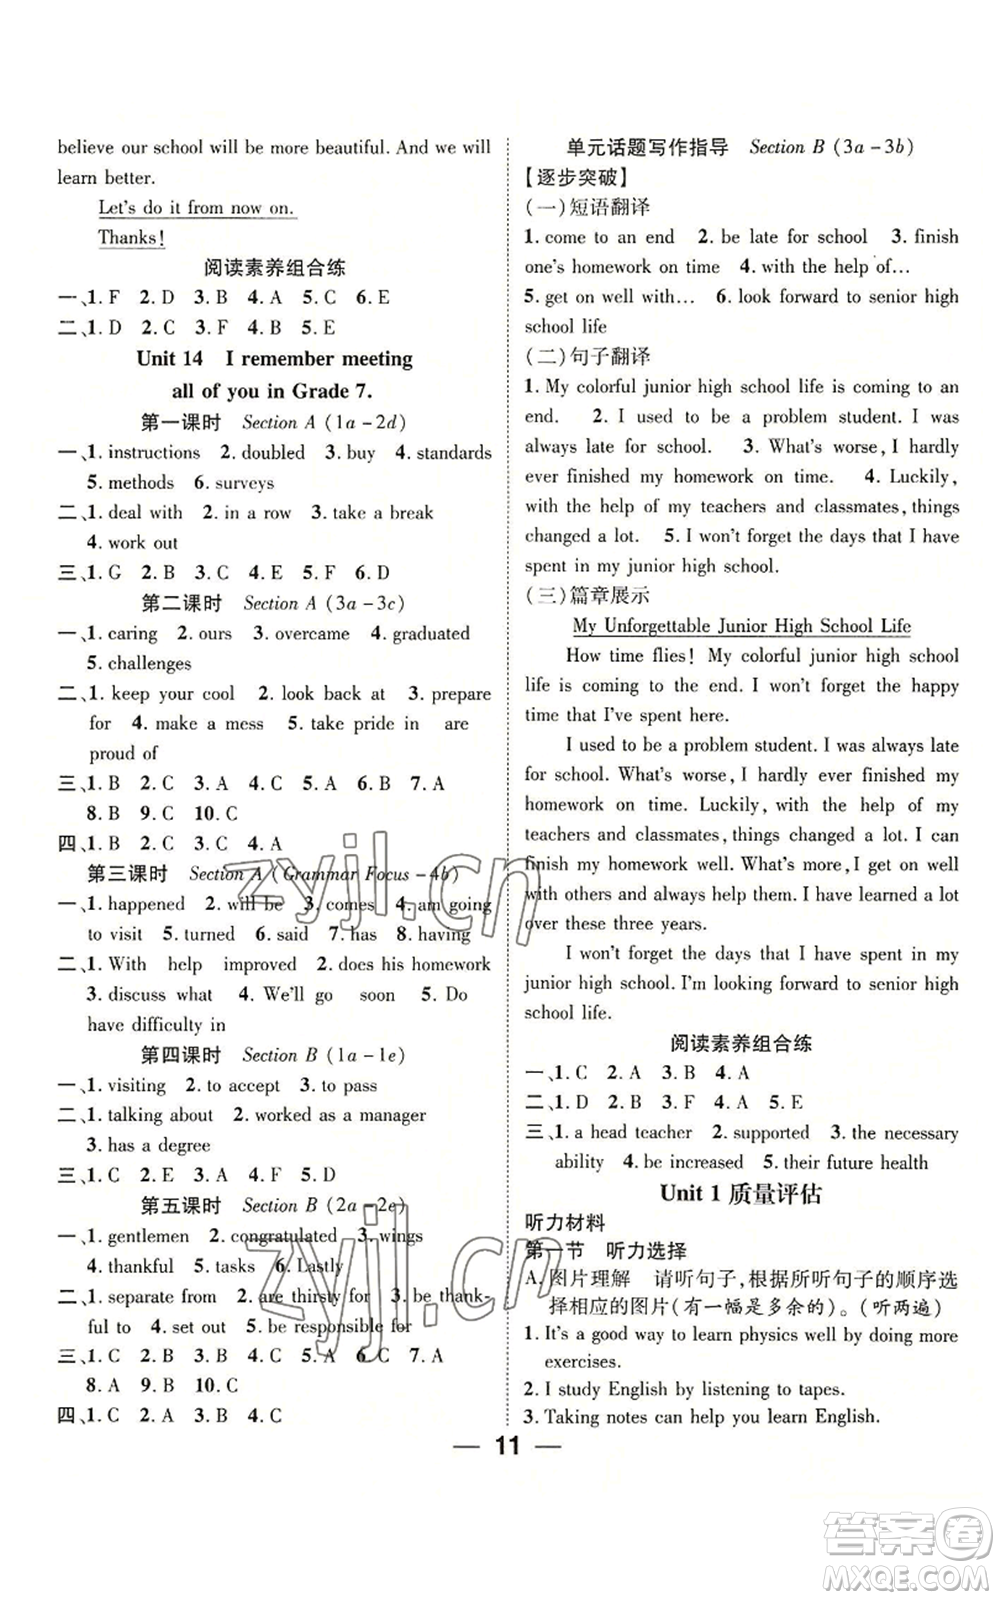 believe our school will be more beautiful. And we will
learn better.
Let's do it from now on.
Thanks!
阅读素养组合练
一、1. F 2. D 3. B 4. A 5. C 6. E
二、1. D 2. C 3. F 4. B 5. E
Unit 14 I remember meeting
all of you in Grade 7.
第一课时 Section A (1a-2d)
一、1. instructions 2. doubled 3. buy 4. standards
5. methods 6. surveys
二、1. deal with 2. in a row 3. take a break
4. work out
三、1. G 2. B 3. C 4. E 5. F
第二课时 Section A (3a-3c)
一、1. caring 2. ours 3. overcame 4. graduated
5. challenges
二、1. keep your cool 2. look back at 3. prepare
for 4. make a mess 5. take pride in are
proud of
三、1. B 2. C 3. A 4. C 5. B 6. B 7. A
8. B 9. C 10. C
四、1. B 2. C 3. C 4. A
第三课时 Section A (Grammar Focus-4b)
一、1. happened 2. will be 3. comes 4. am going
to visit 5. turned 6. said 7. has 8. having
二、1. With help improved 2. does his homework
3. discuss what 4. We'll go soon 5. Do
have difficulty in
第四课时 Section B (1a-1e)
一、1. visiting 2. to accept 3. to pass
二、1. talking about 2. worked as a manager
3. has a degree
三、1. C 2. E 3. A 4. F 5. D
第五课时 Section B (2a-2e)
一、1. gentlemen 2. congratulated 3. wings
4. thankful 5. tasks 6. Lastly
二、1. separate from 2. are thirsty for 3. be thank-
ful to 4. set out 5. be responsible for
三、1. C 2. B 3. B 4. C 5. A 6. C 7. A
8. A 9. B 10. C
四、1. C 2. A 3. A 4. C
单元话题写作指导 Section B (3a-3b)
【逐步突破】
(一)短语翻译
1. come to an end 2. be late for school 3. finish
one's homework on time 4. with the help of…
5. get on well with… 6. look forward to senior high
school life
(二)句子翻译
1. My colorful junior high school life is coming to an
end. 2. I used to be a problem student. I was
always late for school. 3. What's worse, I hardly
ever finished my homework on time. 4. Luckily,
with the help of my teachers and classmates, things
changed a lot. 5. I won't forget the days that I have
spent in my junior high school.
(三)篇章展示
My Unforgettable Junior High School Life
How time flies! My colorful junior high school
life is coming to the end. I won't forget the happy
time that I've spent here.
I used to be a problem student. I was always late
for school. What's worse, I hardly ever finished my
homework on time. Luckily, with the help of my
teachers and classmates, things changed a lot. I can
finish my homework well. What's more, I get on well
with others and always help them. I have learned a lot
over these three years.
I won't forget the days that I have spent in my
junior high school. I'm looking forward to senior high
school life.
阅读素养组合练
一、1. C 2. A 3. B 4. A
二、1. D 2. B 3. F 4. A 5. E
三、1. a head teacher 2. supported 3. the necessary
ability 4. be increased 5. their future health
Unit 1 质量评估
听力材料
第一节 听力选择
A. 图片理解 请听句子,根据所听句子的顺序选
择相应的图片(有一幅是多余的)。(听两遍)
1. It's a good way to learn physics well by doing more
exercises.
2. I study English by listening to tapes.
3. Taking notes can help you learn English.
11
zyjl.cn
zyjl.cn
答案圈
MXQE.COM